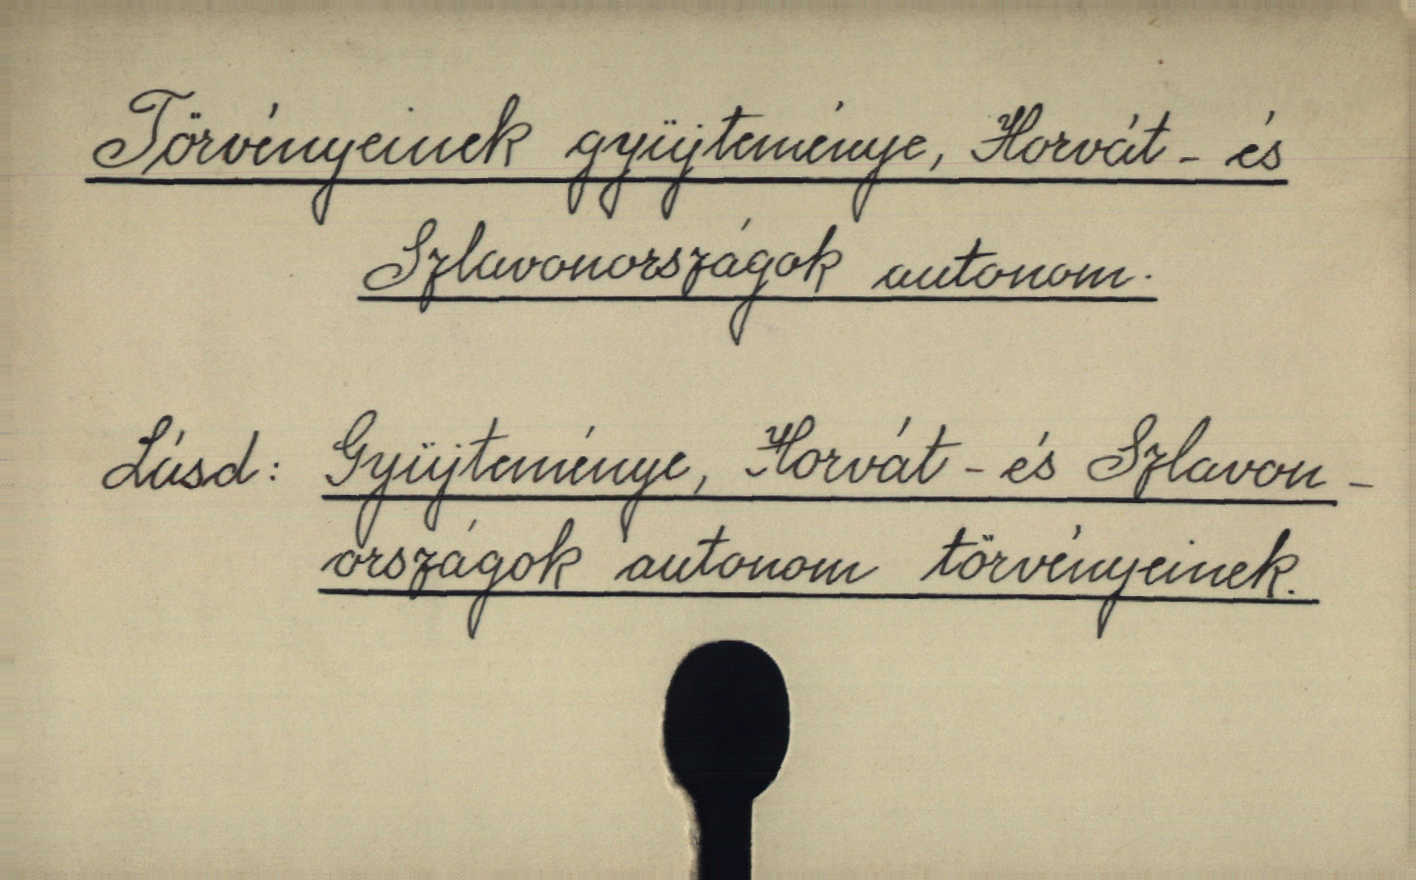 Törvényeinek gyüjteménye, Horvát- és
Szlavonországok autonom.
Lásd: Gyüjteménye, Horvát- és Szlavon-
országok autonom törvényeinek.